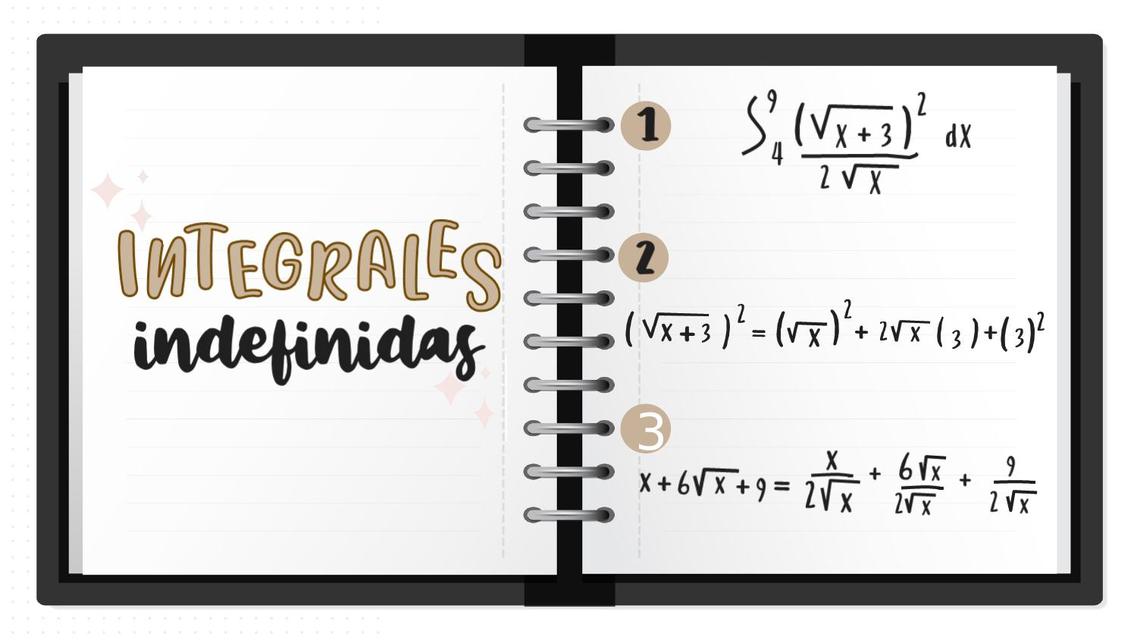 INTEGRALES
indefinidas
1
∫₄⁹ (√x + 3)² / 2√x dx
2
(√x + 3)² = (√x)² + 2√x (3) + (3)²
3
x + 6√x + 9 = x / 2√x + 6√x / 2√x + 9 / 2√x